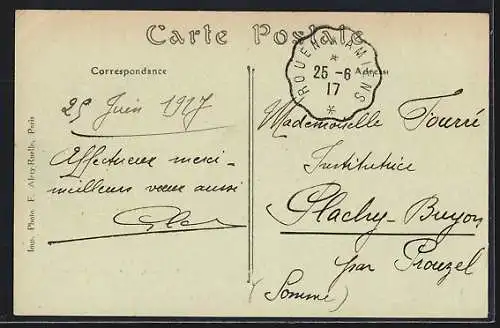 Carte Postale
Correspondance
Adresse
ROUEN A AMIENS
25 - 6
17
25 Juin 1917
Affectueux merci -
meilleurs vœux aussi
Mademoiselle Fourré
Institutrice
Plachy-Buyon
par Prouzel
(Somme)
Imp. Photo E. Paris